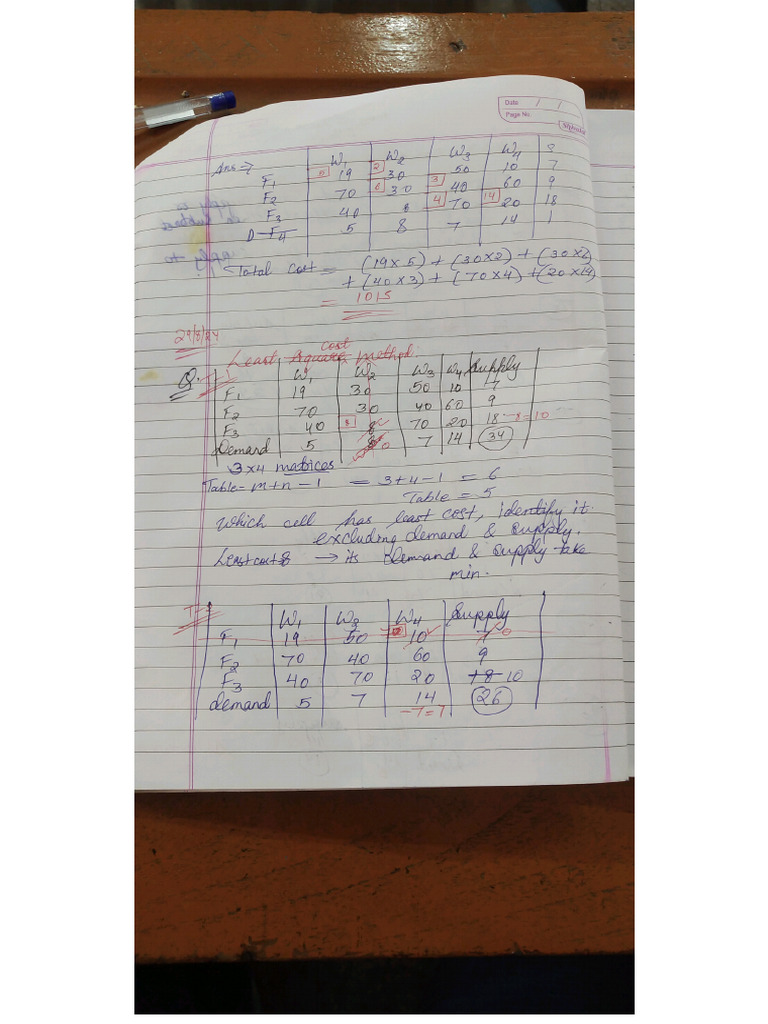 Date / /
Page No
Ans ⇒ W1 W2 W3 W4 S
F1 5 19 2 30 50 10 7
F2 70 6 30 3 40 60 9
F3 40 8 4 70 14 20 18
D-F4 5 8 7 14 1
Total cost = (19×5) + (30×2) + (30×2)
+ (40×3) + (70×4) + (20×14)
= 1015
29/8/24
Least cost method.
Q. T-1 W1 W2 W3 W4 Supply
F1 19 30 50 10 7
F2 70 30 40 60 9
F3 40 8 8 70 20 18 -8=10
Demand 5 8 0 7 14 34
3×4 matrices
Table = m+n-1 = 3+4-1 = 6
Table = 5
Which cell has least cost, identify it
excluding demand & supply.
Least cost 8 → its demand & supply take
min.
W1 W3 W4 Supply
F1 19 50 7 10 7 0
F2 70 40 60 9
F3 40 70 20 18 10
demand 5 7 14 26
-7=7